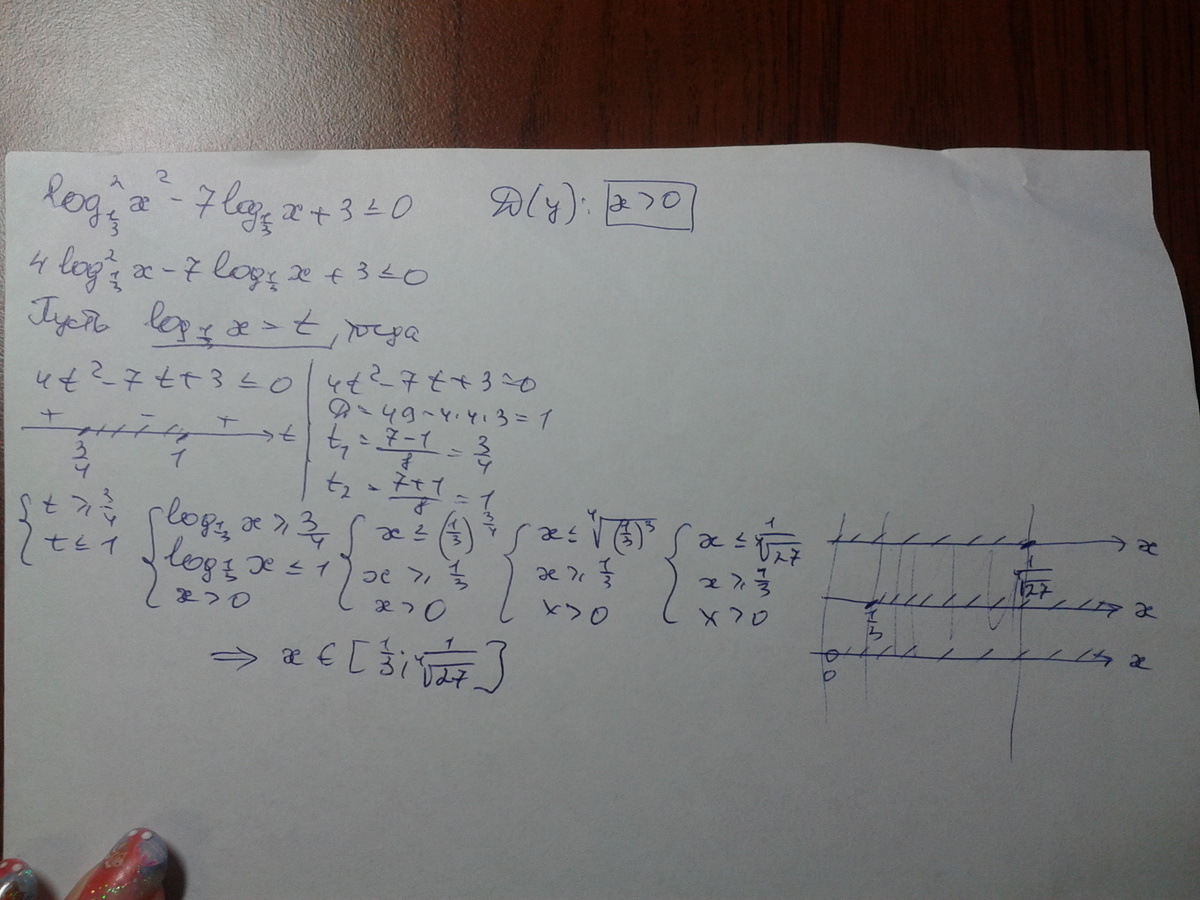 log²_{1/3} x² - 7 log_{1/3} x + 3 ≤ 0    D(y): x > 0
4 log²_{1/3} x - 7 log_{1/3} x + 3 ≤ 0
Пусть log_{1/3} x = t, тогда
4t² - 7t + 3 ≤ 0
+ - +
3/4 1 t
4t² - 7t + 3 = 0
D = 49 - 4·4·3 = 1
t₁ = (7-1)/8 = 3/4
t₂ = (7+1)/8 = 1
{ t ≥ 3/4
t ≤ 1
{ log_{1/3} x ≥ 3/4
log_{1/3} x ≤ 1
x > 0
{ x ≤ (1/3)^{3/4}
x ≥ 1/3
x > 0
{ x ≤ ⁴√((1/3)³)
x ≥ 1/3
x > 0
{ x ≤ 1/⁴√27
x ≥ 1/3
x > 0
1/⁴√27 x
1/3 x
0 x
⇒ x ∈ [1/3; 1/⁴√27]